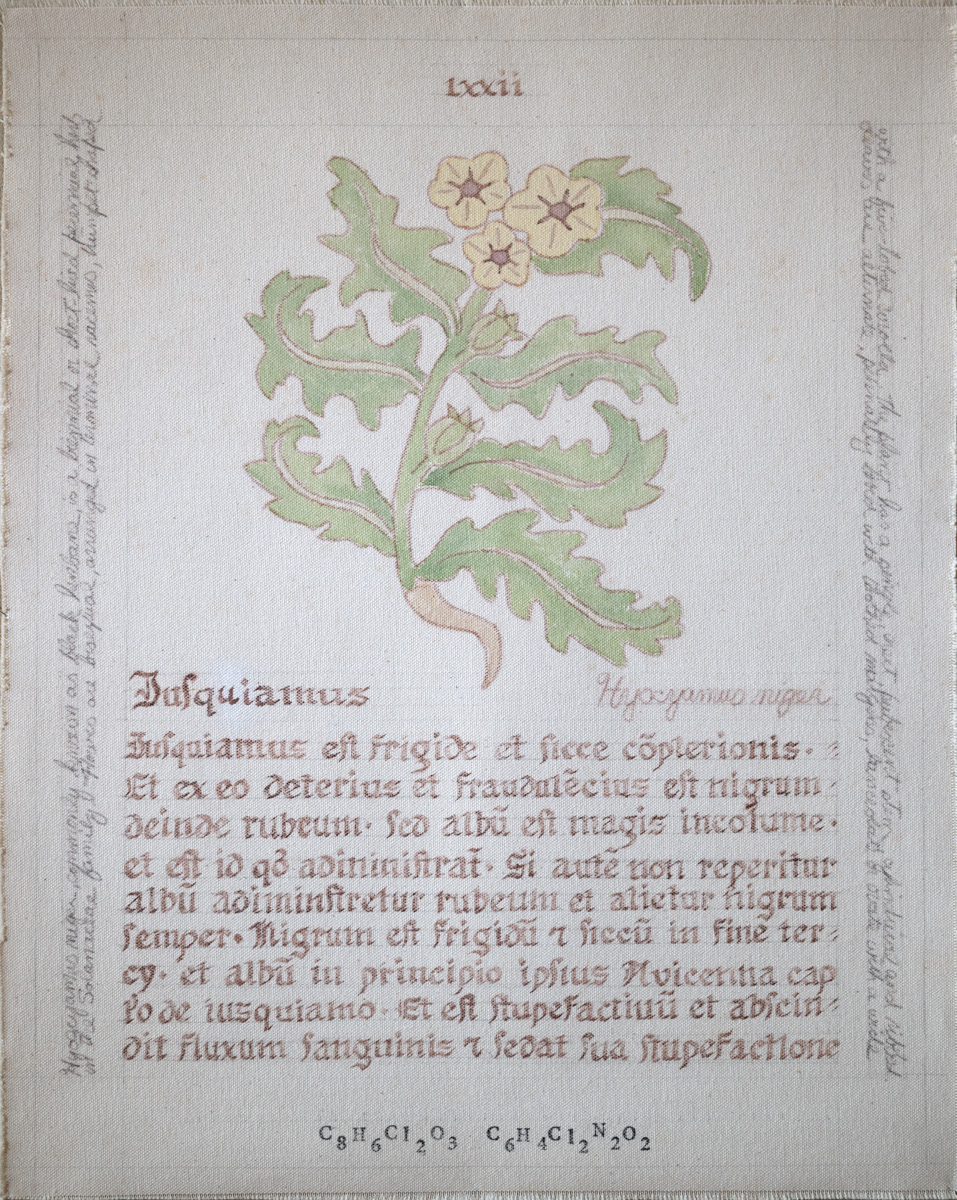 lxxii
Iusquiamus
Hyoscyamus niger
Iuſquiamus eſt frigide et ſicce cõplexionis·
Et ex eo deterius et fraudulẽcius eſt nigrum
deinde rubeum· ſed albũ eſt magis incolume·
et eſt id qđ adminiſtrat̃· Si autẽ non reperitur
albũ adiminſtretur rubeum et alietur nigrum
ſemper· Nigrum eſt frigidũ ⁊ ſiccũ in fine ter⸗
cy· et albũ in principio ipſius Avicenna cap
ło de iusquiamo· Et eſt ſtupefactiuũ et abſcin⸗
dit fluxum ſanguinis ⁊ ſedat ſua ſtupefactione
Hyoscyamus niger, commonly known as black henbane, is a biennial or short lived perennial herb
in the Solanaceae family. Flowers are bisexual, arranged in terminal racemes, trumpet shaped
with a five-lobed corolla. The plant has a single, erect pubescent stem, cylindrical and ribbed.
Leaves are alternate, primarily lobed with toothed margins, lanceolate to ovate with a
C₈H₆Cl₂O₃ C₆H₄Cl₂N₂O₂